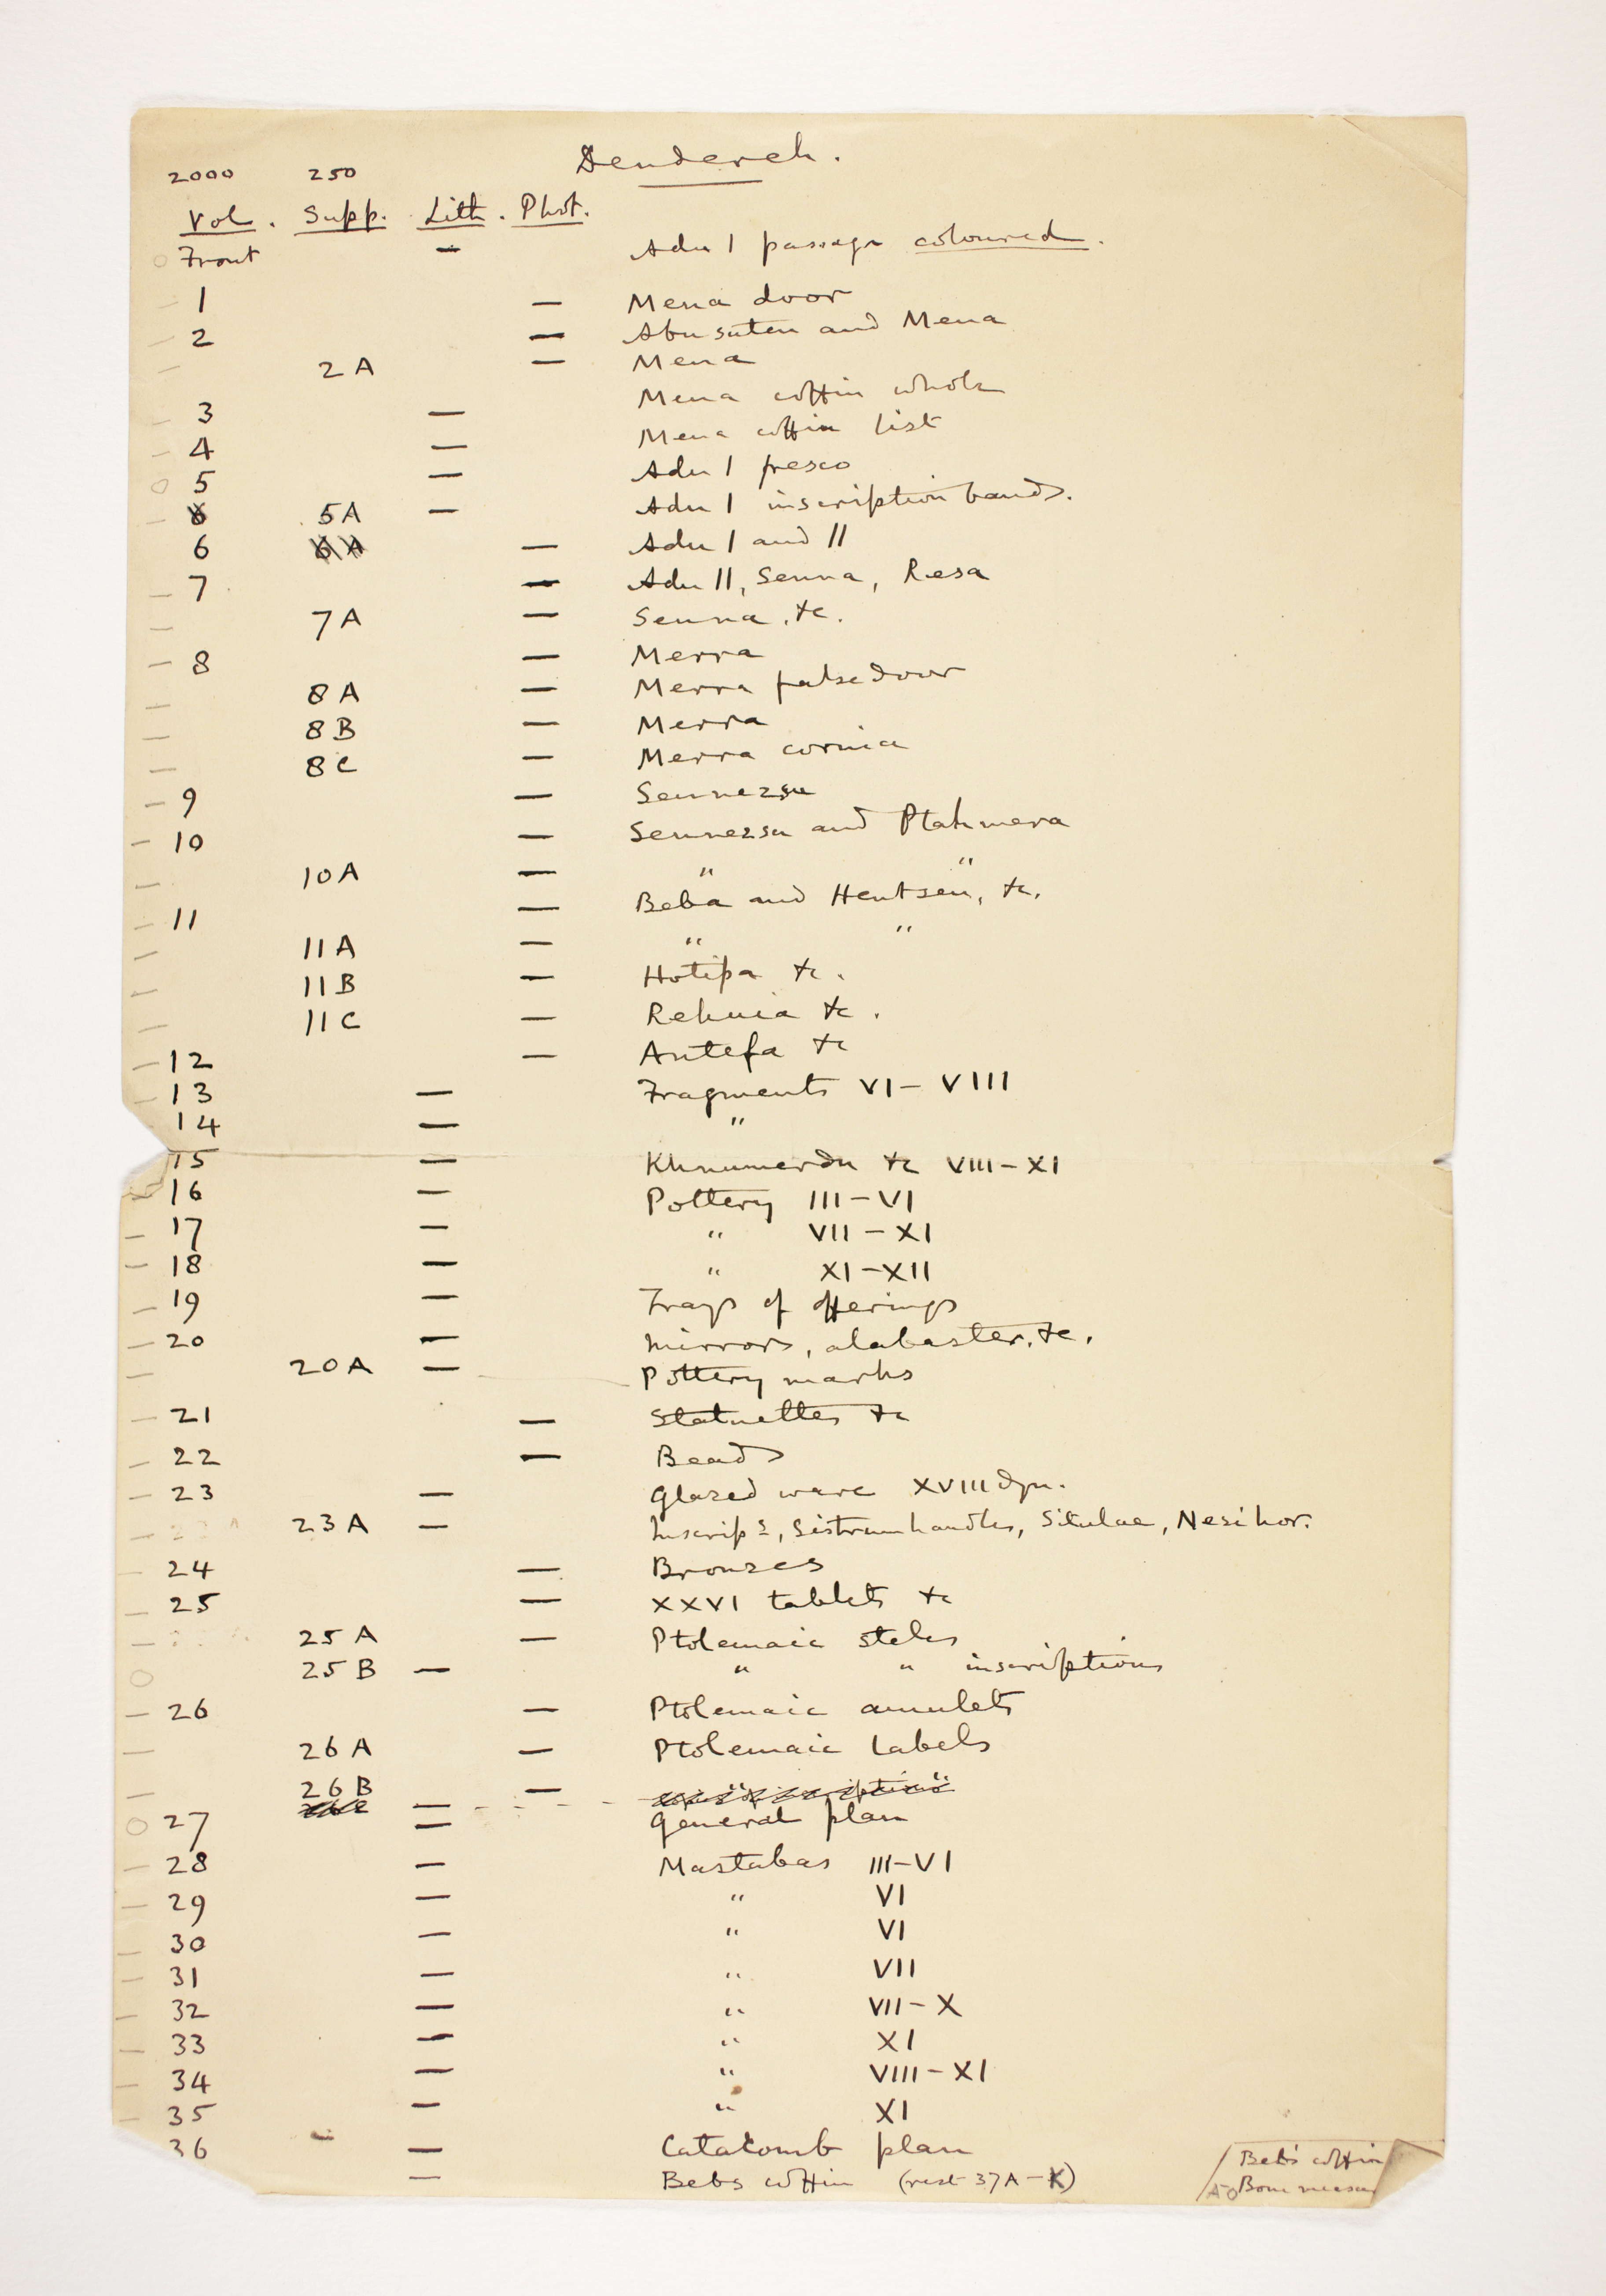 Dendereh.
2000 250
Vol. Supp. Lith. Phot.
Front — Adu I passage coloured.
1 — Mena door
2 — Abu suten and Mena
2A — Mena
3 — Mena coffin whole
4 — Mena coffin list
5 — Adu I fresco
6 5A — Adu I inscription bands.
6 6A — Adu I and II
7 — Adu II, Senna, Resa
7A — Senna, &c.
8 — Merra
8A — Merra false door
8B — Merra
8C — Merra cornice
9 — Sennezsu
10 — Sennezsu and Ptahmera
10A — " "
11 — Beba and Hentsen, &c.
11A — " "
11B — Hotipa &c.
11C — Rehuia &c.
12 — Antefa &c
13 — Fragments VI – VIII
14 — "
15 — Khnumerdu &c VIII – XI
16 — Pottery III – VI
17 — " VII – XI
18 — " XI – XII
19 — Trays of offerings
20 — Mirrors, alabaster, &c.
20A — Pottery marks
21 — Statuettes &c
22 — Beads
23 — Glazed ware XVIII dyn.
23A — Inscrips, Sistrum handles, Situlae, Nesihor.
24 — Bronzes
25 — XXVI tablets &c
25A — Ptolemaic steles
25B — " " inscriptions
26 — Ptolemaic amulets
26A — Ptolemaic labels
26B —
27 — General plan
28 — Mastabas III – VI
29 — " VI
30 — " VI
31 — " VII
32 — " VII – X
33 — " XI
34 — " VIII – XI
35 — " XI
36 — Catacomb plan
— Bebs coffin (rest 37A – K)
Beb's coffin
Bone